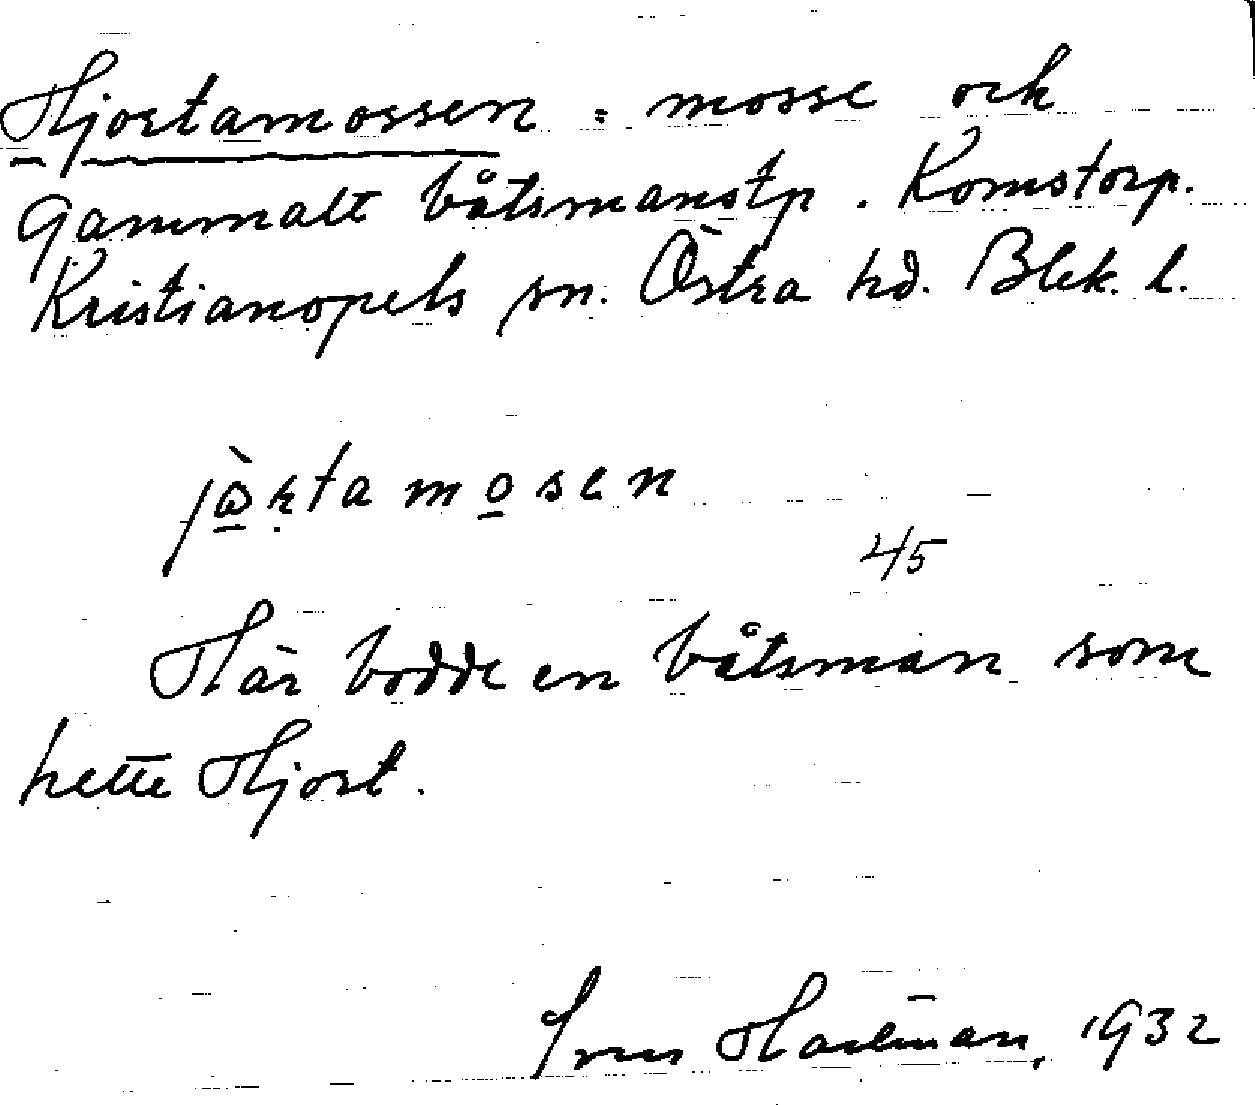 Hjortamossen = mosse och
gammalt båtsmanstp. Komstorp.
Kristianopels sn. Östra hd. Blek. l.
jò̱ṛtamo̱sen
45
Här bodde en båtsman som
hette Hjort.
1932